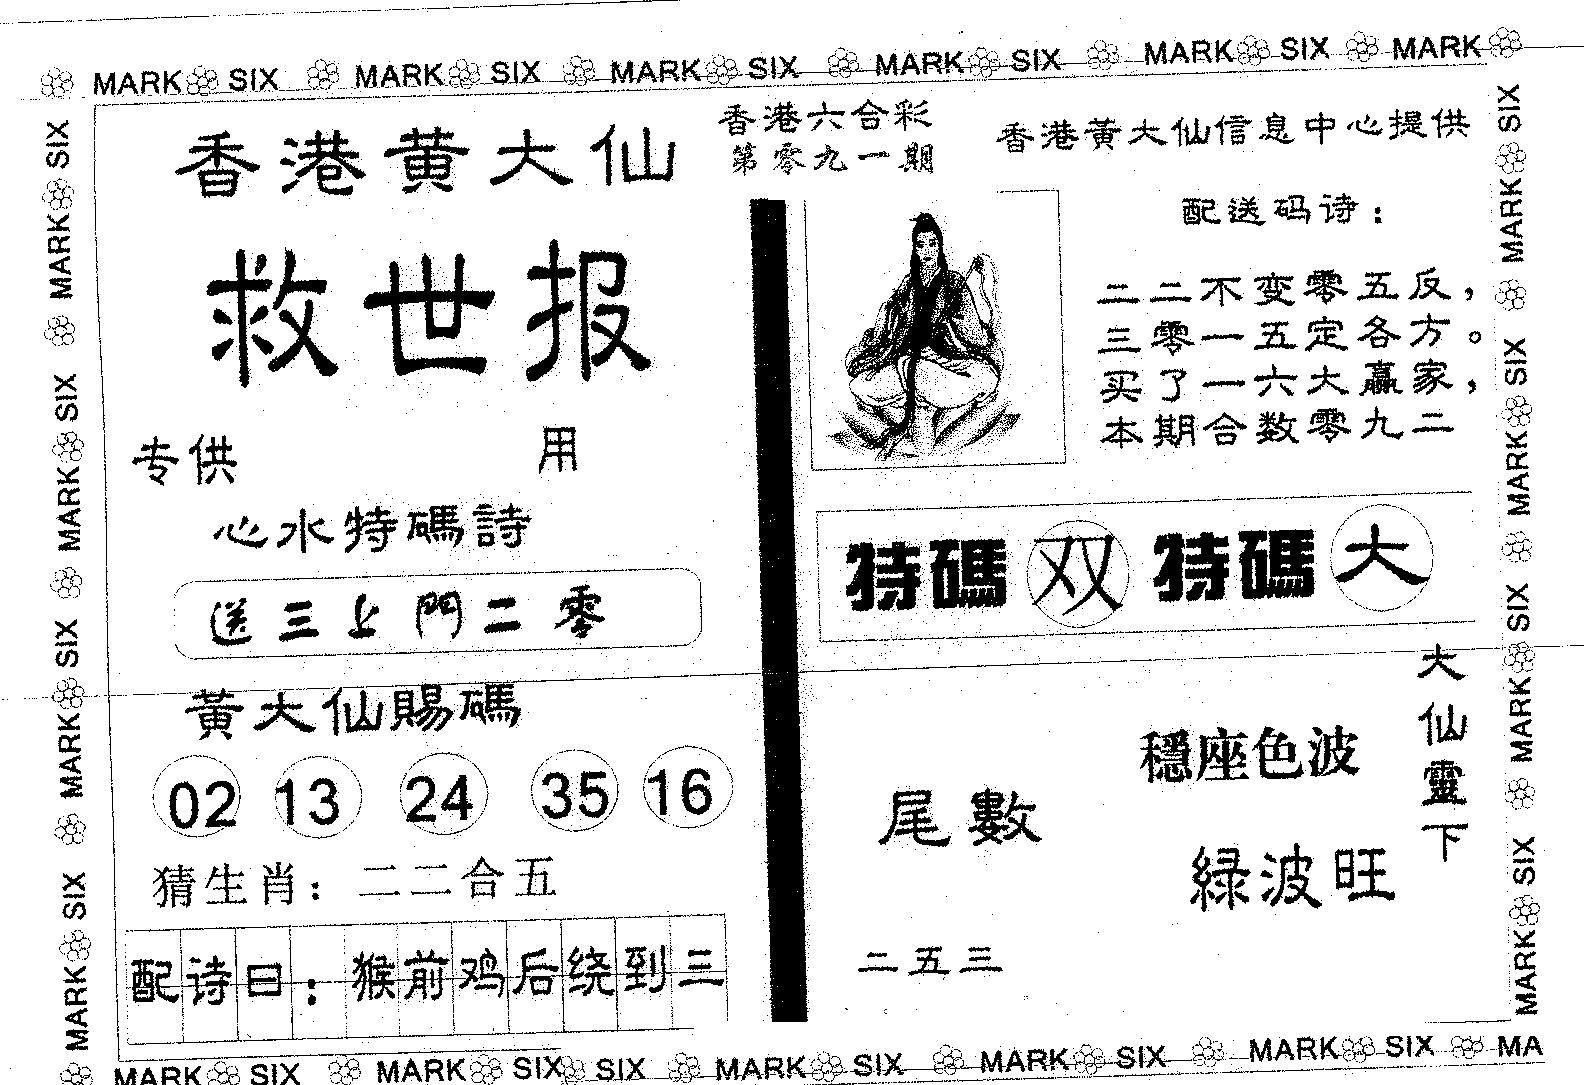 MARK SIX MARK SIX MARK SIX MARK SIX MARK SIX MARK
香港黄大仙
救世报
专供 用
心水特碼詩
送三上門二零
黃大仙賜碼
02 13 24 35 16
猜生肖：二二合五
配诗曰：猴前鸡后绕到三
香港六合彩
第零九一期
香港黄大仙信息中心提供
配送码诗：
二二不变零五反，
三零一五定各方。
买了一六大赢家，
本期合数零九二
特碼 双 特碼 大
尾數
二五三
穩座色波
綠波旺
大仙靈下
MARK SIX MARK SIX MARK SIX MARK SIX
MARK SIX MARK SIX MARK SIX MARK SIX
MARK SIX MARK SIX SIX MARK SIX MARK SIX MARK SIX MA